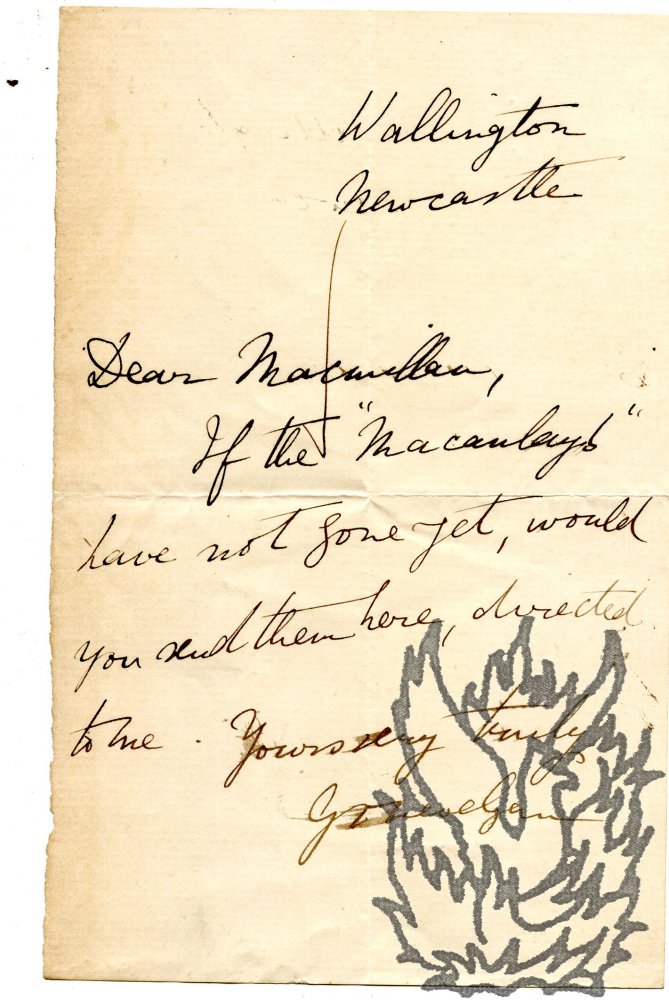 Wallington
Newcastle
Dear Macmillan,
If the "Macaulays"
have not gone yet, would
you send them here, directed
to me. Yours very truly
G O Trevelyan